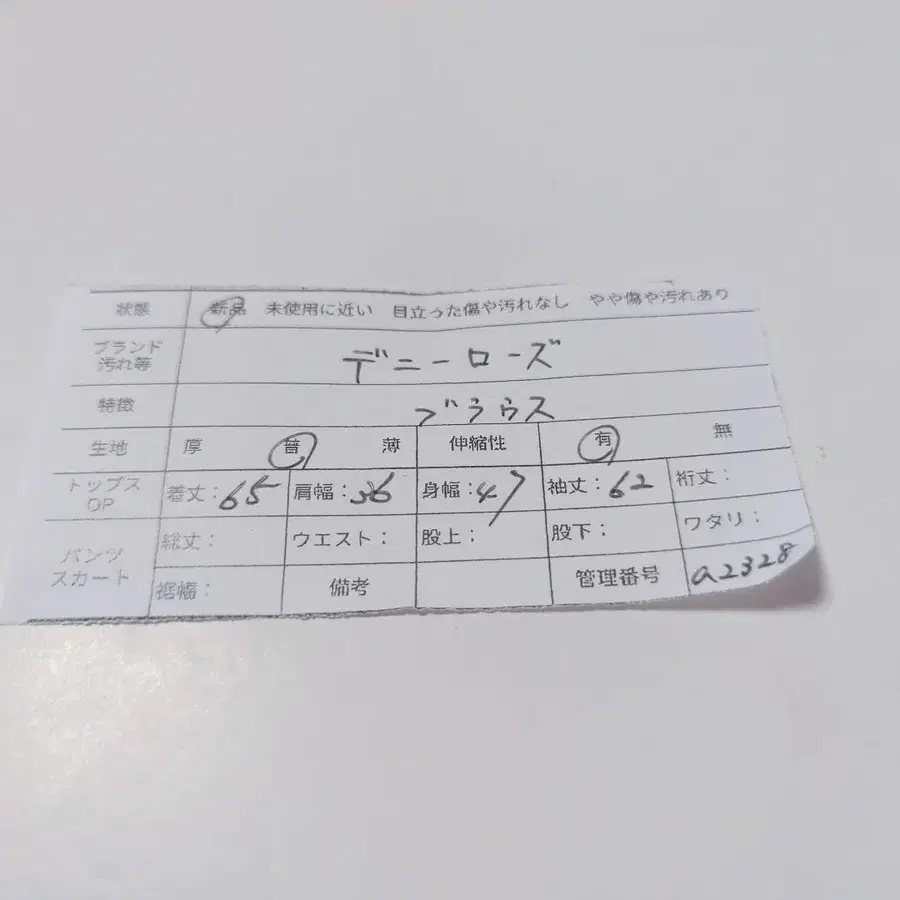 状態 新品 未使用に近い 目立うた傷や汚れなし やや傷や汚れあり
ブランド
汚れ等 デニーローズ
特徴 ブラウス
生地 厚 普 薄 伸縮性 有 無
トップス
OP 着丈：65 肩幅：36 身幅：47 袖丈：62 裄丈：
パンツ
スカート 総丈： ウエスト： 股上： 股下： ワタリ：
裾幅： 備考 管理番号 a2328